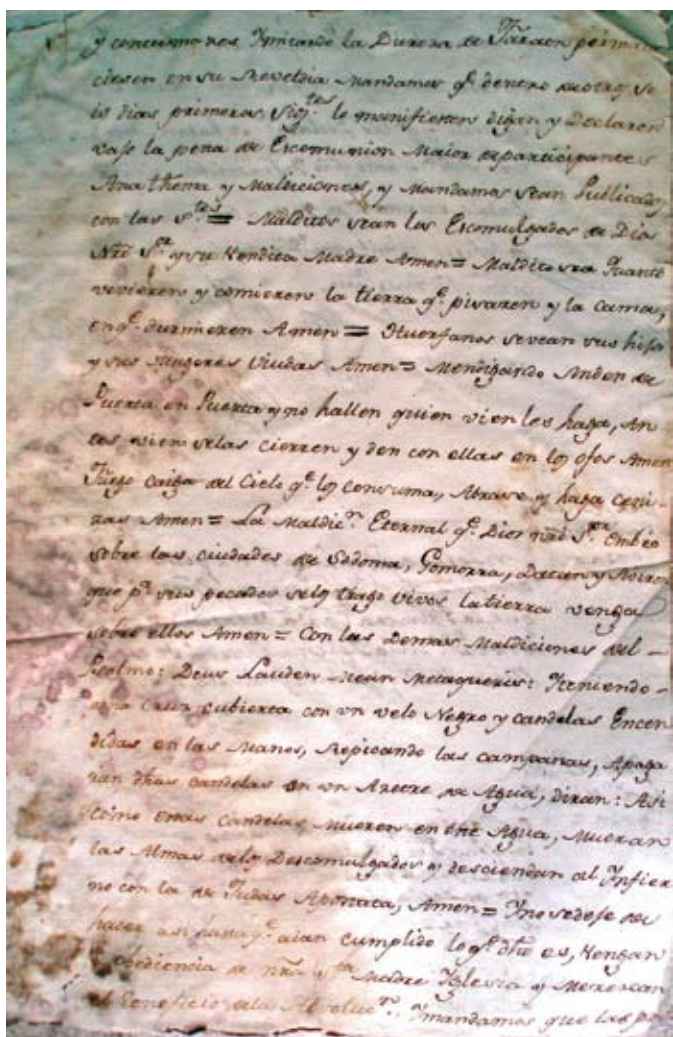 y contumases Ymitando la Dureza de Faraon perma
ciesen en su Reveldia Mandamos q.e dentro de otros se
is dias primeros sig.tes lo manifiesten digan y Declaren
vajo la pena de Excomunion Maior de participantes
Anathema y Maldiciones, y Mandamos sean Publicados
con las s.tes = Malditos sean los Excomulgados de Dios
Nrõ S.r y su Vendita Madre Amen = Maldito sea Quanto
vevieren y comieren la tierra q.e pisaren y la Cama,
en q.e durmieren Amen = Huerfanos se vean sus hijos
y sus Mugeres Viudas Amen = Mendigando Anden de
Puerta en Puerta y no hallen quien vien les haga, An
tes vien selas cierren y den con ellas en los ojos Amen
Fuego caiga del Cielo q.e los consuma, Abrase y haga ceni
zas Amen = La Maldic.n Eternal q.e Dios nrõ S.or Embio
sobre las ciudades de Sodoma, Gomorra, Datan y Aviron
que p.r sus pecados selos trago vivos la tierra venga
sobre ellos Amen = Con las Demas Maldiciones del –
Psalmo: Deus Lauden Mean Metaqueris: Yteniendo –
una Cruz cubierta con vn velo Negro y candelas Encen
didas en las Manos, Repicando las campanas, Apaga
ran dhas candelas en vn Azetre de Agua, diran: Asi
como estas candelas mueren en dhã Agua, Mueran
las Almas de los Descomulgados y desciendan al Ynfier
no con la de Judas Apostata, Amen = Yno sedeje de
hacer asi hasta q.e aian cumplido lo q.e dhõ es, Vengan
Obediencia de nrã S.ta Madre Yglesia y Merezcan
el Beneficio dela Absoluc.n Ymandamos que las